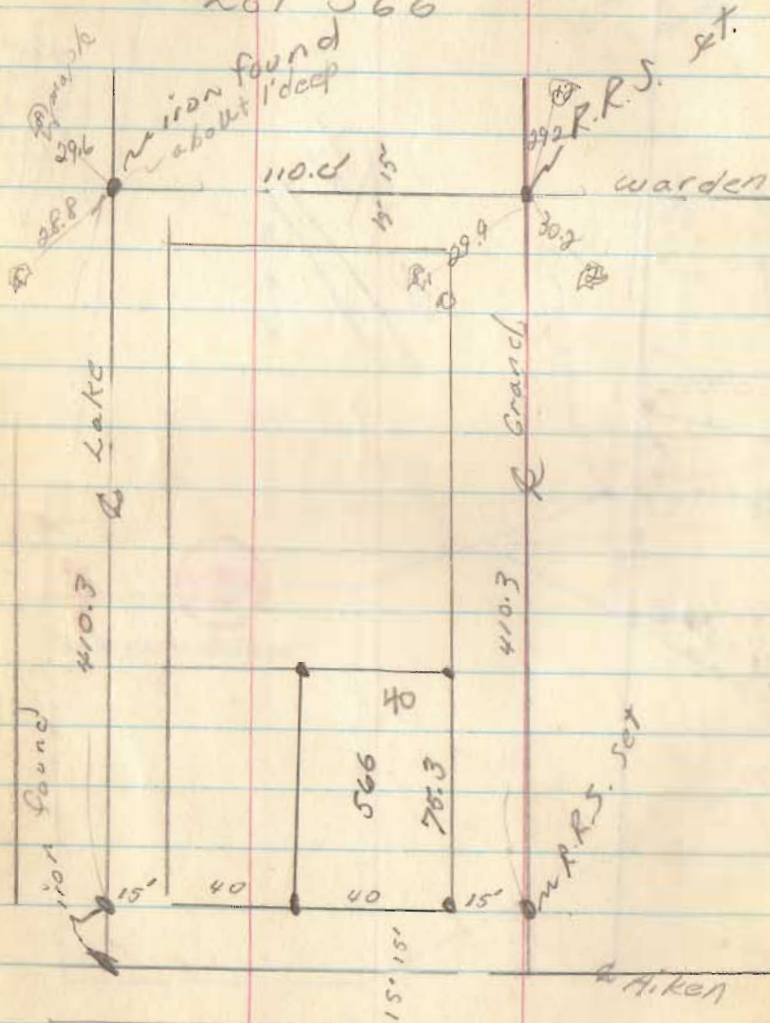 Lot 566
maple
iron found
about 1' deep
R.R.S. st.
29.6
29.2
110.0
15'
15'
Warden
28.8
29.9
30.2
℄ Lake
℄ Grand
410.3
410.3
40
566
75.3
iron found
R.R.S. set
15'
40
40
15'
15' 15'
℄ Aiken